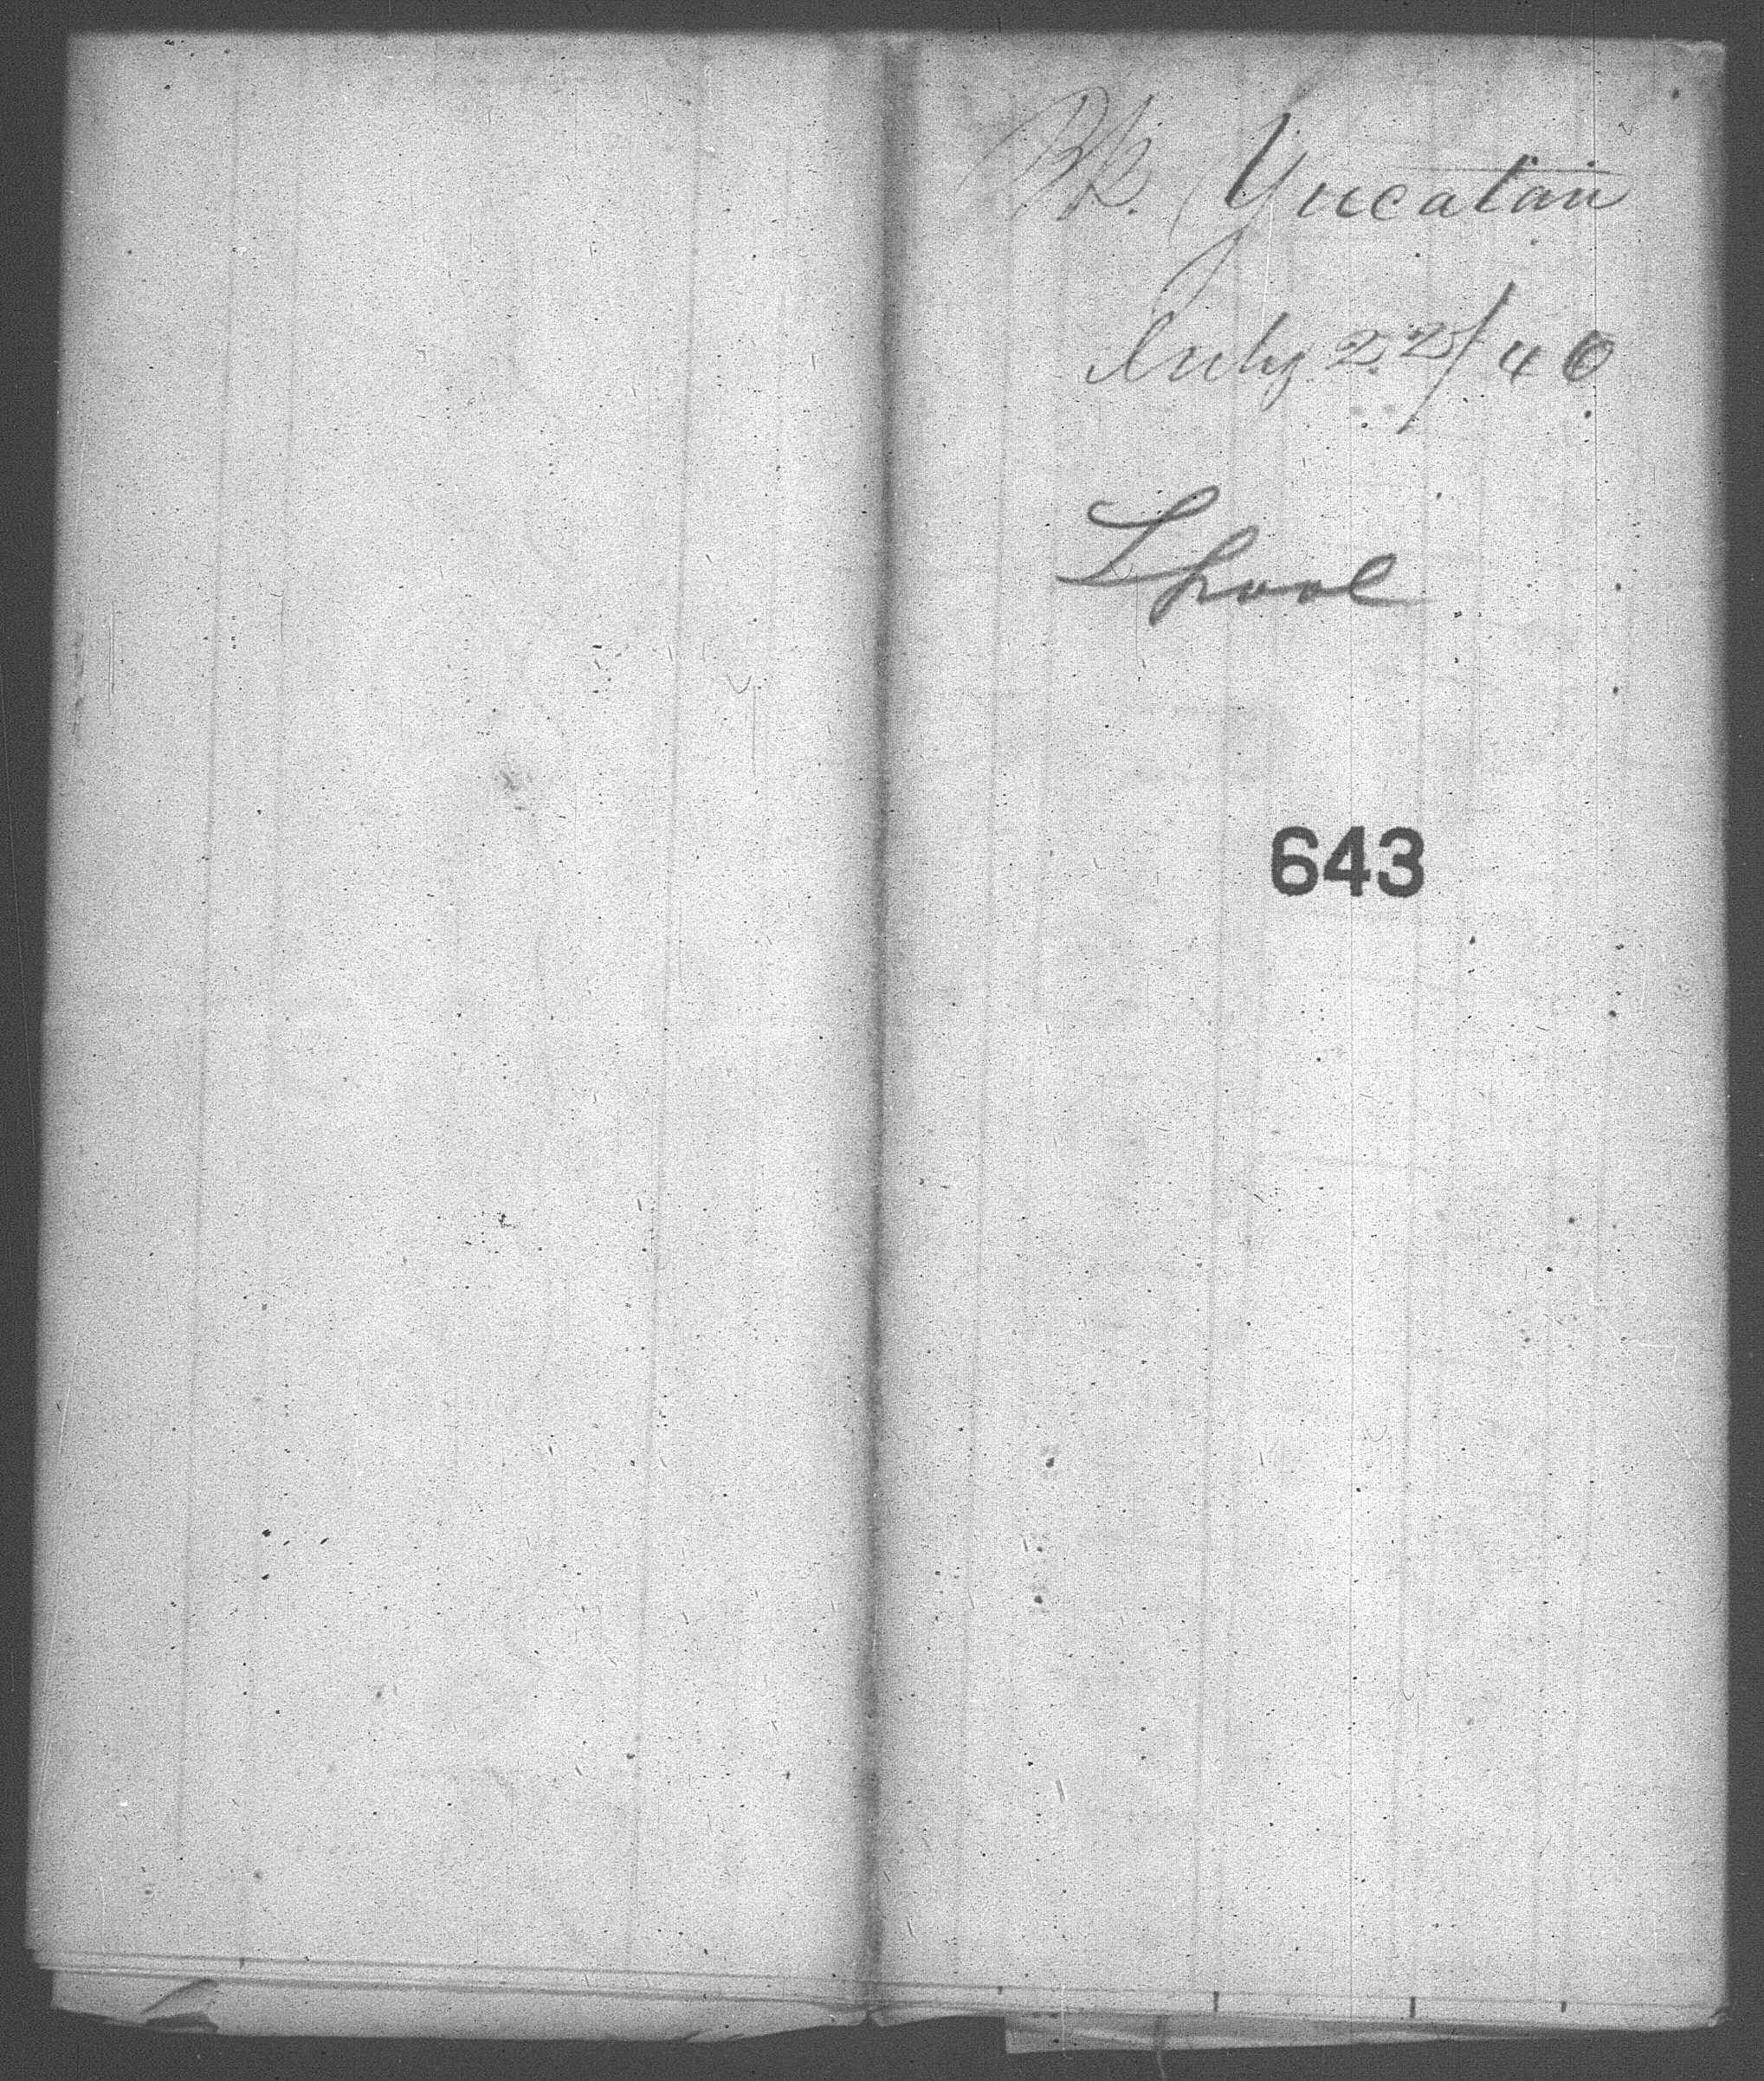 Bk. Yucatan
July 22/40
Lpool
643